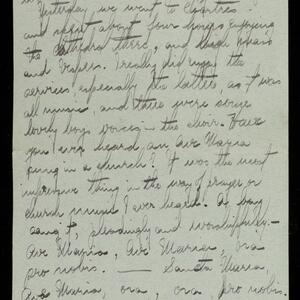 Yesterday we went to Chartres
and spent about four hours enjoying
the Cathedral there, and high mass
and Vespers. I really did enjoy the
services, especially the latter, as it was
all music, and there were some
lovely boys voices in the choir. Have
you ever heard an Ave Maria
sung in a church? It was the most
impressive thing in the way of prayer or
church music I ever heard. A boy
sang it, pleadingly and worshipfully. —
Ave Maria, Ave Maria, ora
pro nobis. — Santa Maria
Ave Maria, ora, ora, ora pro nobis.